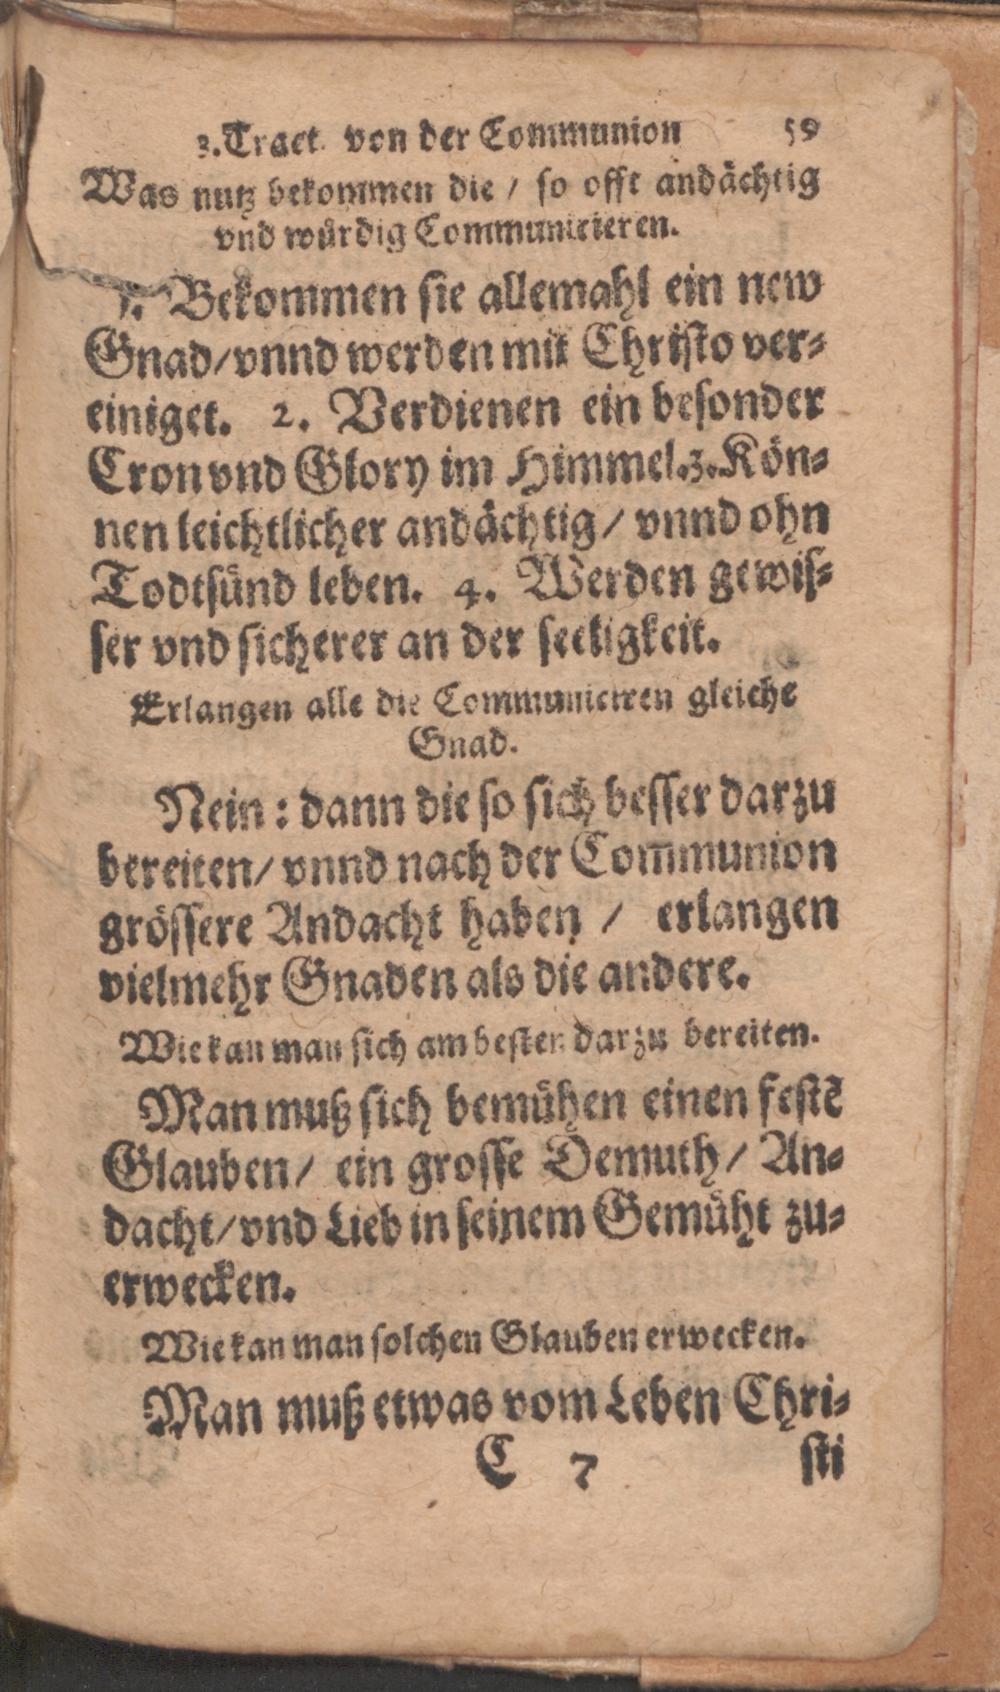 3. Tract. von der Communion 59
Was nutz bekommen die / so offt andächtig
vnd würdig Communicieren.
1. Bekommen sie allemahl ein new
Gnad / vnnd werden mit Christo ver-
einiget. 2. Verdienen ein besonder
Cron vnd Glory im Himmel. 3. Kön-
nen leichtlicher andächtig / vnnd ohn
Todtsünd leben. 4. Werden gewis-
ser vnd sicherer an der seeligkeit.
Erlangen alle die Communicieren gleiche
Gnad.
Nein: dann die so sich besser darzu
bereiten / vnnd nach der Com̅munion
grössere Andacht haben / erlangen
vielmehr Gnaden als die andere.
Wie kan man sich am besten darzu bereiten.
Man muß sich bemühen einen festē
Glauben / ein grosse Demuth / An-
dacht / vnd Lieb in seinem Gemüht zu-
erwecken.
Wie kan man solchen Glauben erwecken.
Man muß etwas vom Leben Chri-
C 7 sti